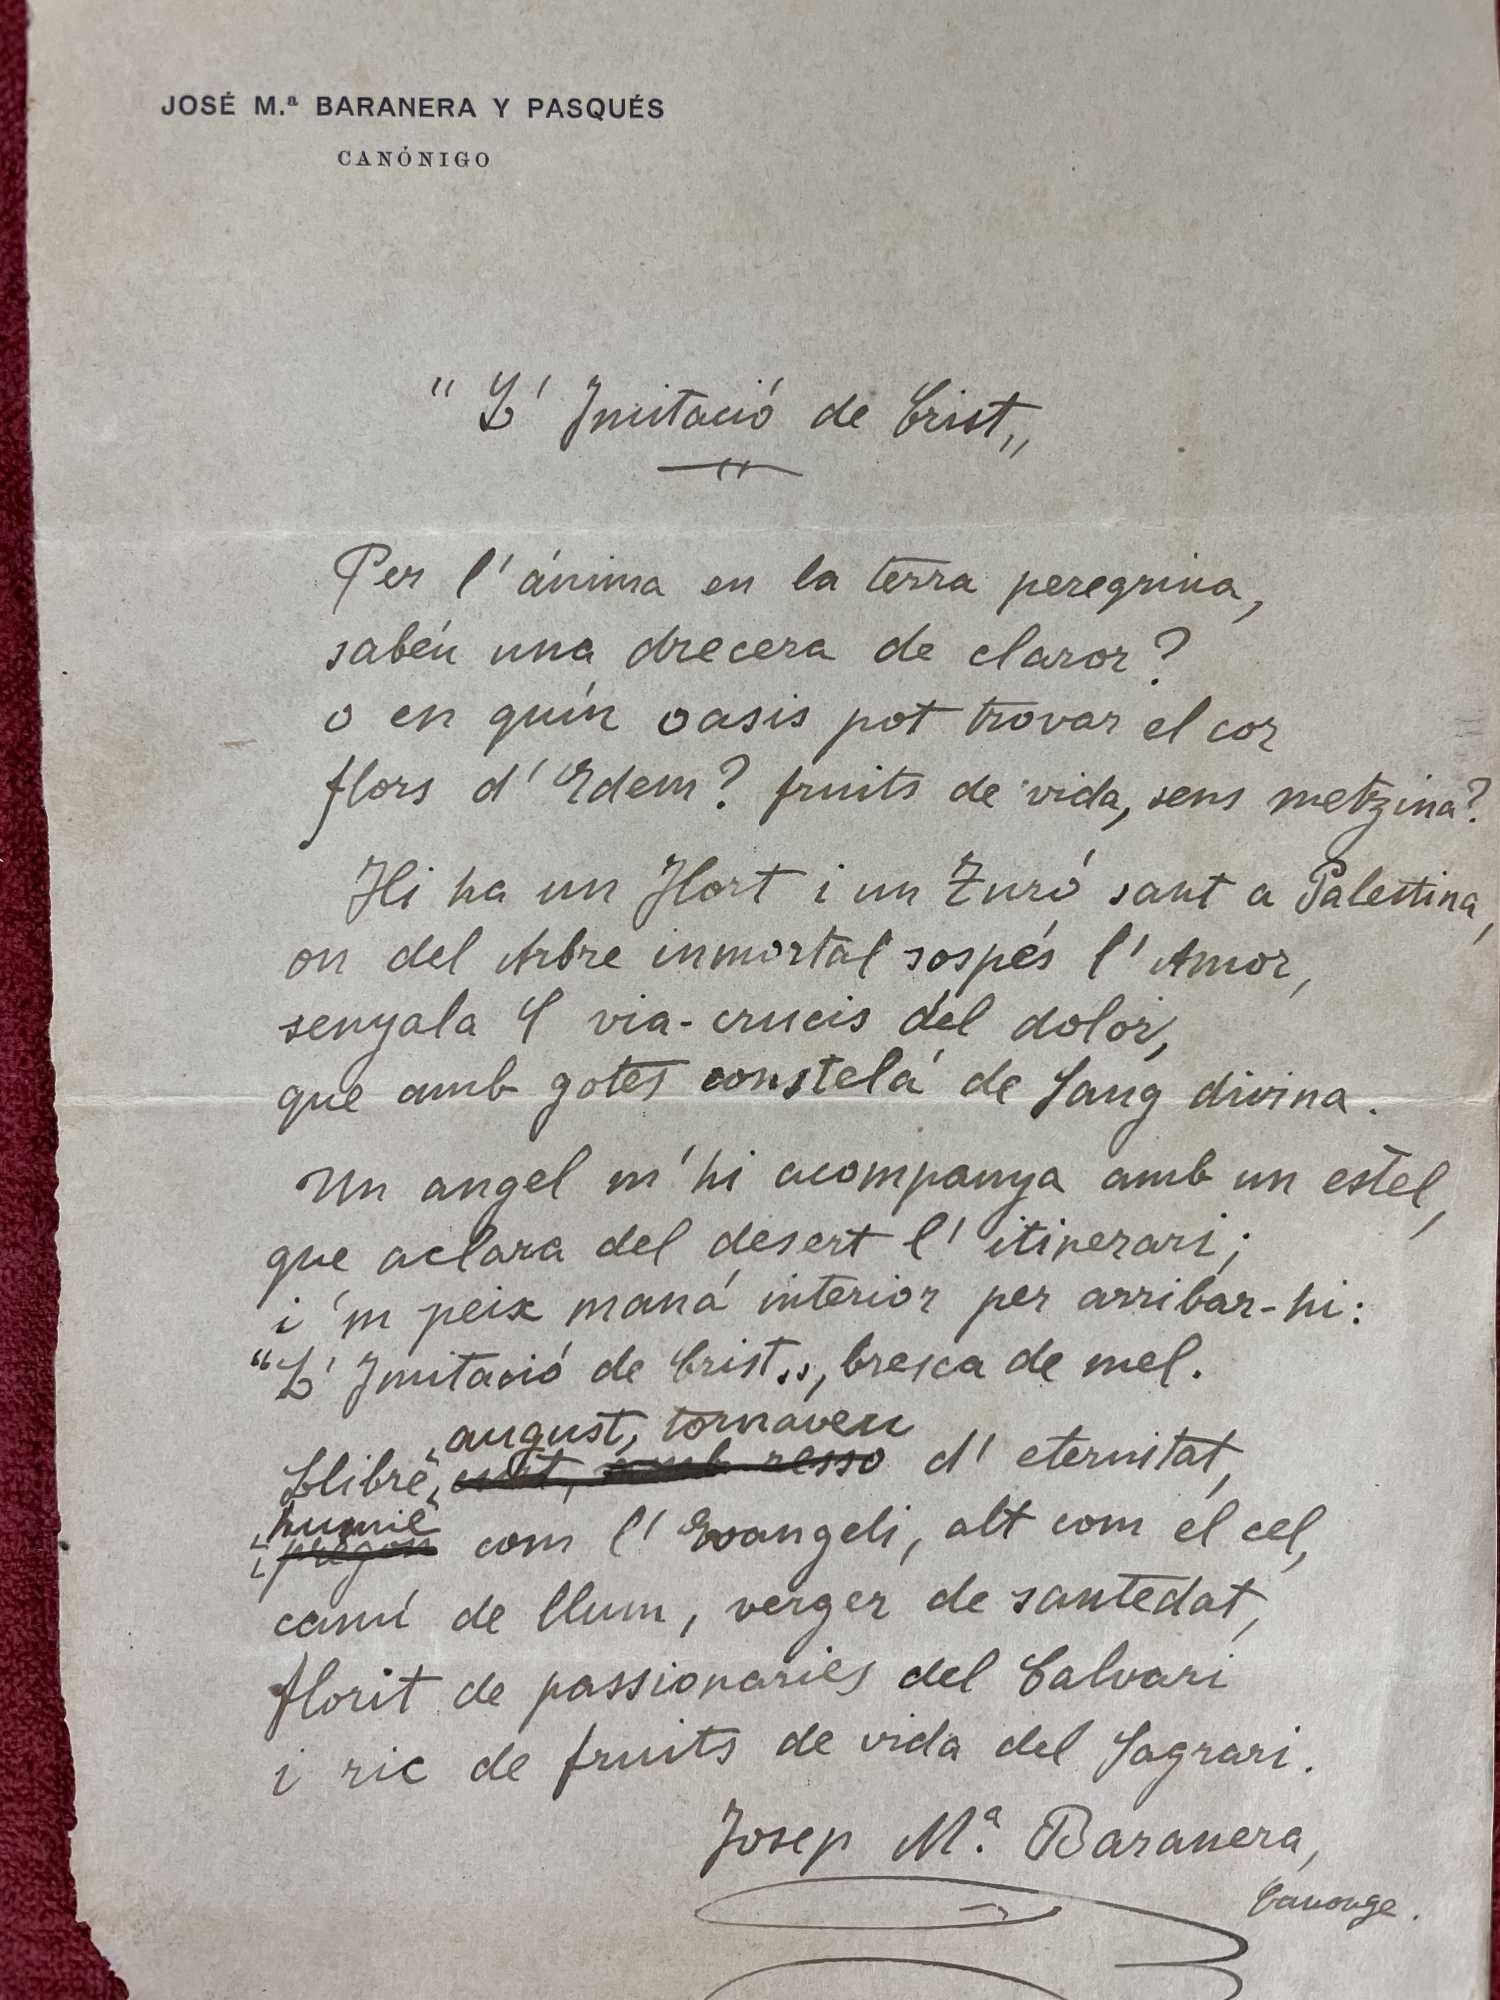 JOSÉ M.ª BARANERA Y PASQUÉS
CANÓNIGO
"L' Imitació de Crist„
Per l'ánima en la terra peregrina,
sabéu una drecera de claror?
o en quín oasis pot trovar el cor
flors d'Edem? fruits de vida, sens metzina?
Hi ha un Hort i un Turó sant a Palestina,
on del Arbre inmortal sospés l'Amor,
senyala l via-crucis del dolor,
que amb gotes constelá de Sang divina.
Un angel m'hi acompanya amb un estel,
que aclara del desert l'itinerari;
i 'm peix maná interior per arribar-hi:
"L'Imitació de Crist„, bresca de mel.
august, tornaveu
Llibre amb resso d'eternitat,
humil
i pregon com l'Evangeli, alt com el cel,
camí de llum, verger de santedat,
florit de passionaries del Calvari
i ric de fruits de vida del Sagrari.
Josep Mª. Baranera,
Canonge.